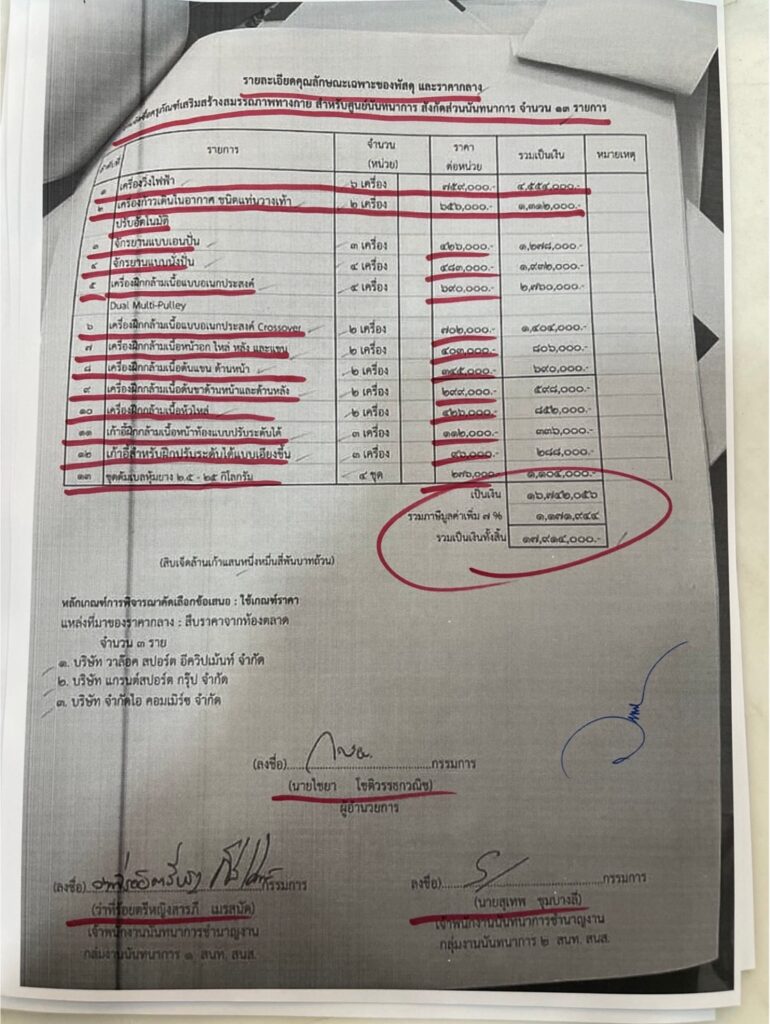 รายละเอียดคุณลักษณะเฉพาะของพัสดุ และราคากลาง
จัดซื้อครุภัณฑ์เสริมสร้างสมรรถภาพทางกาย สำหรับศูนย์นันทนาการ สังกัดส่วนนันทนาการ จำนวน ๑๓ รายการ
ลำดับที่ รายการ จำนวน (หน่วย) ราคา ต่อหน่วย รวมเป็นเงิน หมายเหตุ
๑ เครื่องวิ่งไฟฟ้า ๖ เครื่อง ๗๕๙,๐๐๐.- ๔,๕๕๔,๐๐๐.-
๒ เครื่องก้าวเดินในอากาศ ชนิดแท่นวางเท้า ๒ เครื่อง ๖๕๖,๐๐๐.- ๑,๓๑๒,๐๐๐.-
ปรับอัตโนมัติ
๓ จักรยานแบบเอนปั่น ๓ เครื่อง ๔๒๖,๐๐๐.- ๑,๒๗๘,๐๐๐.-
๔ จักรยานแบบนั่งปั่น ๔ เครื่อง ๔๘๓,๐๐๐.- ๑,๙๓๒,๐๐๐.-
๕ เครื่องฝึกกล้ามเนื้อแบบอเนกประสงค์ ๔ เครื่อง ๖๙๐,๐๐๐.- ๒,๗๖๐,๐๐๐.-
Dual Multi-Pulley
๖ เครื่องฝึกกล้ามเนื้อแบบอเนกประสงค์ Crossover ๒ เครื่อง ๗๐๒,๐๐๐.- ๑,๔๐๔,๐๐๐.-
๗ เครื่องฝึกกล้ามเนื้อหน้าอก ไหล่ หลัง และแขน ๒ เครื่อง ๔๐๓,๐๐๐.- ๘๐๖,๐๐๐.-
๘ เครื่องฝึกกล้ามเนื้อต้นแขน ด้านหน้า ๒ เครื่อง ๓๔๕,๐๐๐.- ๖๙๐,๐๐๐.-
๙ เครื่องฝึกกล้ามเนื้อต้นขาด้านหน้าและด้านหลัง ๒ เครื่อง ๒๙๙,๐๐๐.- ๕๙๘,๐๐๐.-
๑๐ เครื่องฝึกกล้ามเนื้อหัวไหล่ ๒ เครื่อง ๔๒๖,๐๐๐.- ๘๕๒,๐๐๐.-
๑๑ เก้าอี้ฝึกกล้ามเนื้อหน้าท้องแบบปรับระดับได้ ๓ เครื่อง ๑๑๒,๐๐๐.- ๓๓๖,๐๐๐.-
๑๒ เก้าอี้สำหรับฝึกปรับระดับได้แบบเอียงขึ้น ๓ เครื่อง ๙๖,๐๐๐.- ๒๘๘,๐๐๐.-
๑๓ ชุดดัมเบลหุ้มยาง ๒.๕ - ๒๕ กิโลกรัม ๔ ชุด ๒๗๖,๐๐๐.- ๑,๑๐๔,๐๐๐.-
เป็นเงิน ๑๖,๗๔๒,๐๕๖
รวมภาษีมูลค่าเพิ่ม ๗ % ๑,๑๗๑,๙๔๔
รวมเป็นเงินทั้งสิ้น ๑๗,๙๑๔,๐๐๐.-
(สิบเจ็ดล้านเก้าแสนหนึ่งหมื่นสี่พันบาทถ้วน)
หลักเกณฑ์การพิจารณาคัดเลือกข้อเสนอ : ใช้เกณฑ์ราคา
แหล่งที่มาของราคากลาง : สืบราคาจากท้องตลาด
จำนวน ๓ ราย
๑. บริษัท วาล็อค สปอร์ต อีควิปเม้นท์ จำกัด
๒. บริษัท แกรนด์สปอร์ต กรุ๊ป จำกัด
๓. บริษัท จำกัดไอ คอมเมิร์ซ จำกัด
(ลงชื่อ)..............................กรรมการ
(นายไชยา โชติวรรธกวณิช)
ผู้อำนวยการ
(ลงชื่อ)..............................กรรมการ
(ว่าที่ร้อยตรีหญิงสารภี เมรสนัด)
เจ้าพนักงานนันทนาการชำนาญงาน
กลุ่มงานนันทนาการ ๑ สนท. สนส.
(ลงชื่อ)..............................กรรมการ
(นายสุเทพ ชุมบางลี)
เจ้าพนักงานนันทนาการชำนาญงาน
กลุ่มงานนันทนาการ ๒ สนท. สนส.